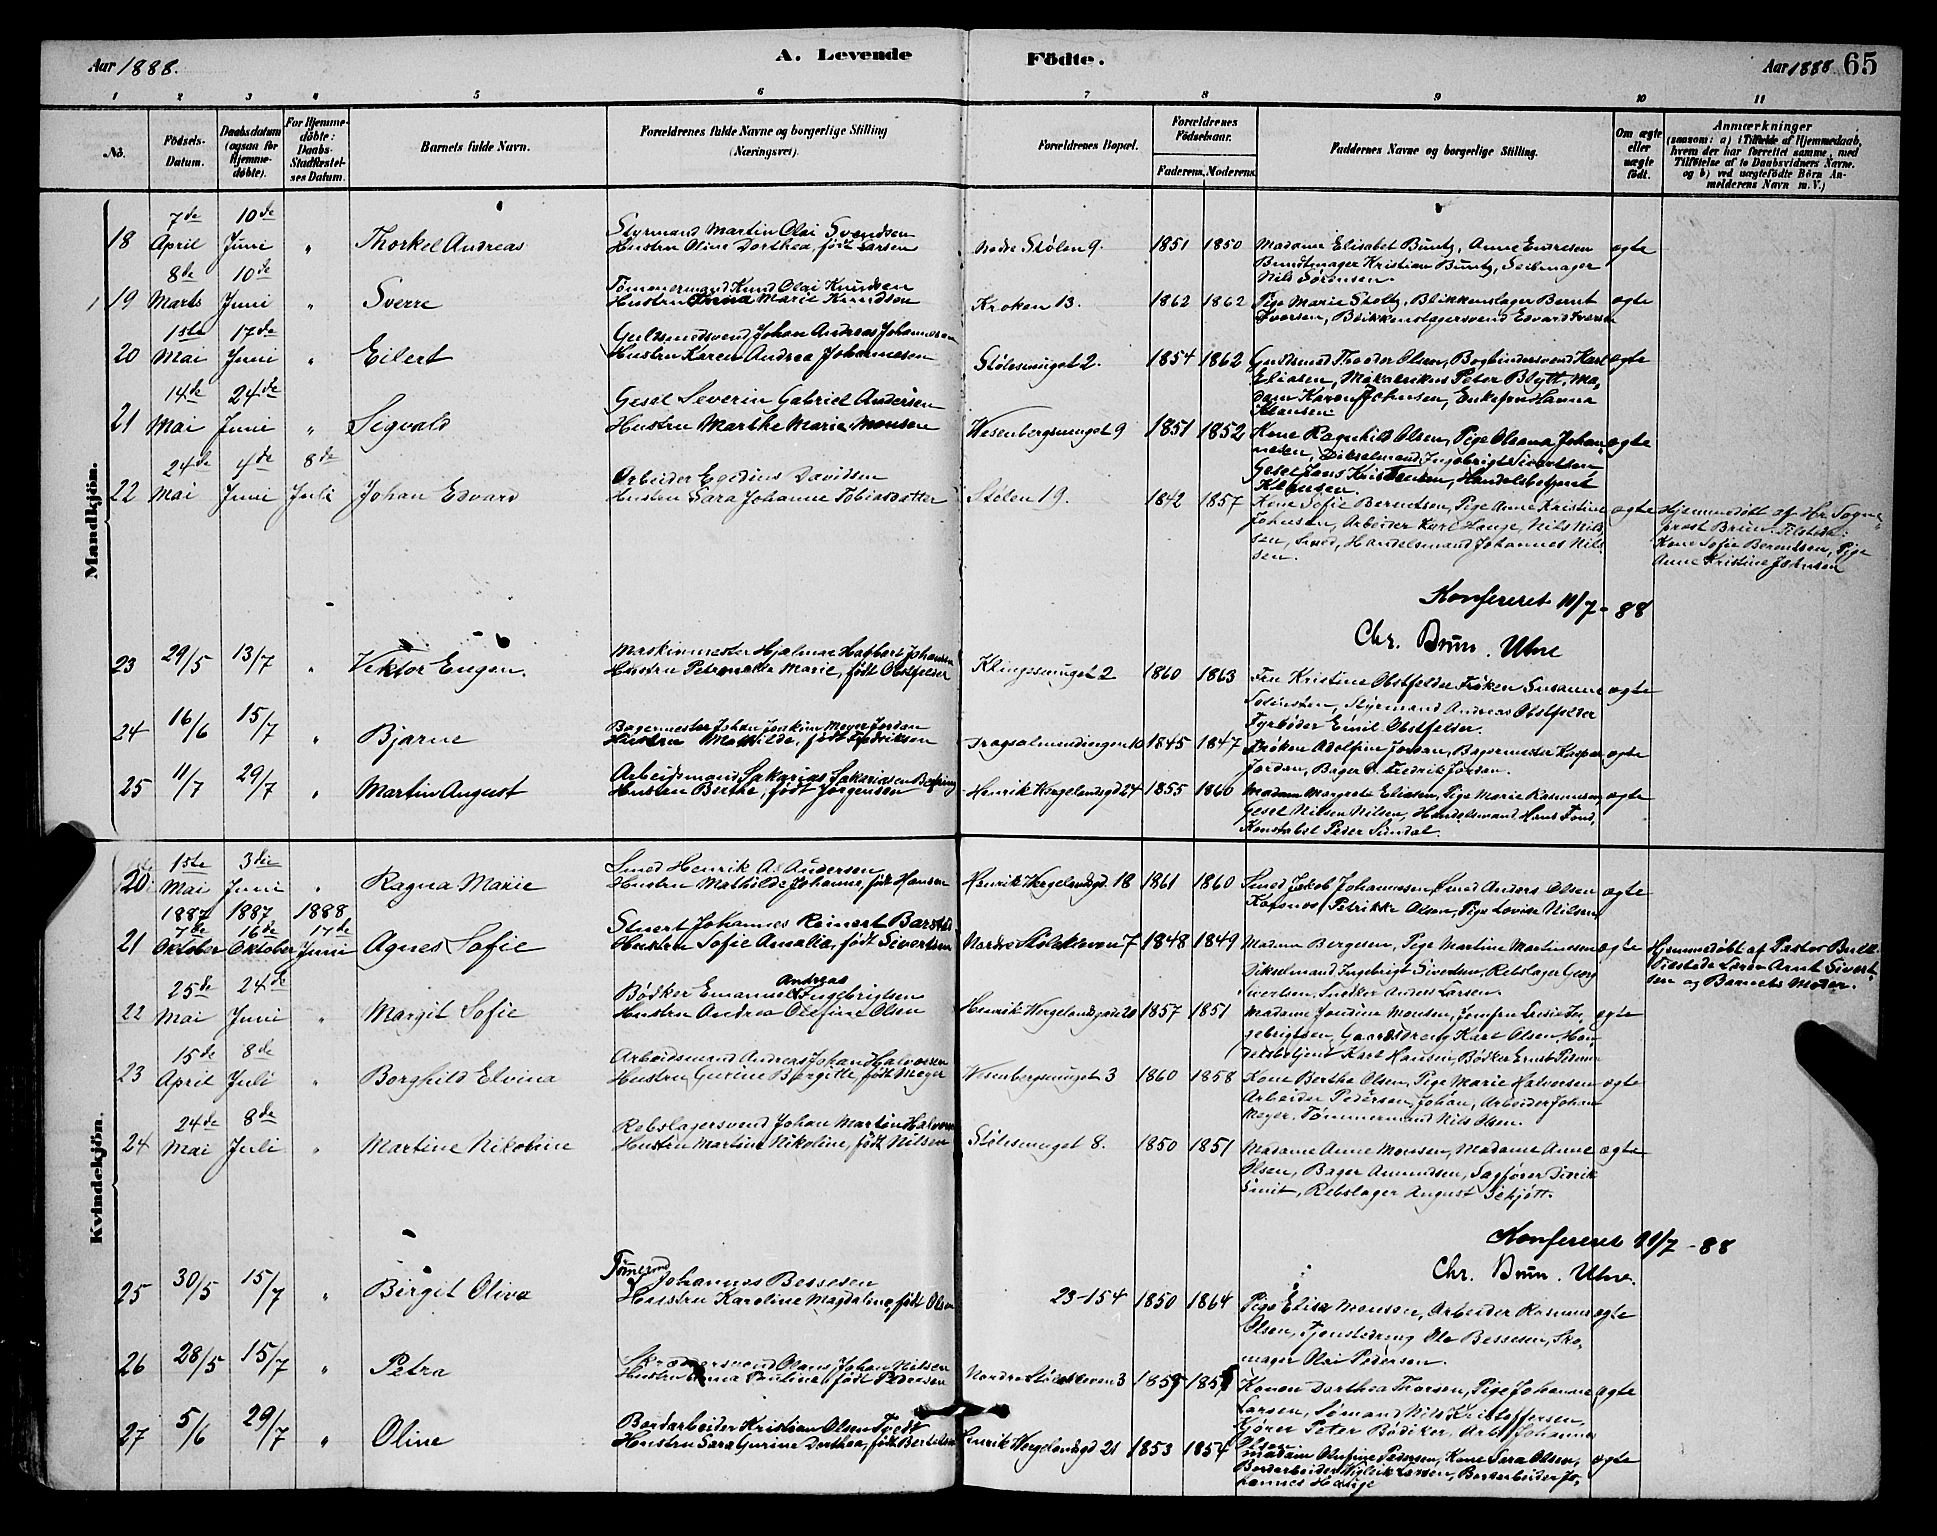 Aar 1888.
A. Levende
Födte.
Aar 1888 65
1 2 3 4 5 6 7 8 9 10 11
No.
Födsels-
Datum.
Daabsdatum
(ogsaa for
Hjemme-
döbte).
For Hjemme-
döbte:
Daabs-
Stadfæstel-
ses Datum.
Barnets fulde Navn.
Forældrenes fulde Navne og borgerlige Stilling
(Næringsvei).
Forældrenes Bopæl.
Forældrenes
Födselsaar.
Faderens. Moderens.
Faddernes Navne og borgerlige Stilling.
Om ægte
eller
uægte
födt.
Anmærkninger
(saasom: a) i Tilfælde af Hjemmedaab,
hvem der har forrettet samme, med
Tilföielse af to Daabsvidners Navne.
og b) ved uægtefödte Börn An-
melderens Navn m. V.)
Mandkjön.
18 7de April 10de Juni " Thorkel Andreas
Styrmand Martin Olai Svendsen
Hustru Oline Dorthea, født Larsen
Nedre Stølen 9. 1851 1850
Madame Elisabet Buntz, Anne Endresen ægte
Bundtmager Kristian Buntz, Seilmager
Nils Sørensen
19 8de Marts 10de Juni " Sverre
Tømmermand Knud Olai Knudsen
Hustru Anna Marie Knudsen
Kroken 13. 1862 1862
Pige Marie Stoltz, Blikkenslager Bernt ægte
Iversen, Blikkenslagersvend Edvard Iversen
20 1ste Mai 17de Juni " Eilert
Guldsmedsvend Johan Andreas Johannesen
Hustru Karen Andrea Johannesen
Stølesmuget 2. 1854 1862
Guldsmed Theodor Olsen, Bogbindersvend Karl ægte
Eliasen, Peter Blytt, Ma-
dam Karen Johnsen, Enkefru Hanna
Klausen.
21 14de Mai 24de Juni " Sigvald
Gesel Severin Gabriel Andersen
Hustru Marthe Marie Monsen
Wesenbergsmuget 9 1851 1852
Kone Ragnhild Olsen, Pige Oleana Johan- ægte
nesen, Dikselmand Ingebrigt Sivertsen
Gesel Jens Kristensen, Handelsbetjent
Klausen.
22 24de Mai 4de Juni 8de Juli Johan Edvard
Arbeider Egidius Davidsen
Hustru Sara Johanne Tobiasdatter
Stølen 19. 1842 1857
Kone Sofie Berentsen, Pige Anne Kristine ægte
Johnsen, Arbeider Karl Hauge, Nils Nil-
sen, Smed, Handelsmand Johannes Nil-
sen.
Hjemmedøbt af Hr. Sogne-
prest Brun Tilstede:
Kone Sofie Berentsen, Pige
Anne Kristine Johnsen
Konfereret 11/7-88
Chr. Brun. Utne
23 29/5 13/7 " Viktor Eugen.
Maskinmester Hjalmar Hafbart Johansen
Hustru Petronelle Marie, født Obstfelder
Klingesmuget 2 1860 1863
Fru Kristine Obstfelder Frøken Susanne ægte
Styrmand Andreas Obstfelder
Fyrbøder Emil Obstfelder.
24 16/6 15/7 " Bjarne
Bagermester Johan Joakim Meyer Jordan
Hustru Mathilde, født Fredriksen
Dragsalmendingen 10 1845 1847
Frøken Adolfine Jordan, Bagermester Kasper ægte
Jordan, Bager C. Fredrik Jordan.
25 11/7 29/7 " Martin August
Arbeidsmand Sakarias Sakariasen
Hustru Berthe, født Jørgensen
Henrik Wergelandsgd 24 1855 1860
Madam Margrete Eliasen, Pige Marie Rasmussen, ægte
Gesel Nilsen Nilsen, Handelsmand Hans
Konstabel Peder Sundal.
Kvindekjön.
20 1ste Mai 3die Juni " Ragna Marie
Smed Henrik A. Andersen
Hustru Mathilde Johanne, født Hansen
Henrik Wergelandsgd. 18 1861 1860
Smed Jakob Johannessen, Smed Anders Olsen ægte
Petrikke Olsen, Pige Lovise Nilsen
21 1887 7de Oktober 1887 16de Oktober 1888 17de Juni Agnes Sofie
Stuert Johannes Reinert Barstad
Hustru Sofie Amalia, født Sivertsen
Nordre Stølekleven 7 1848 1849
Madam Bergesen, Pige Martine Martinesen ægte
Dikselmand Ingebrigt Sivertsen, Rebslager Georg
Sivertsen, Snedker Anders Larsen.
Hjemmedøbt af Pastor Bull
Tilstede Lærer Arnt Sivert-
sen og Barnets Moder.
22 25de Mai 24de Juni " Margit Sofie
Bødker Emanuel Andreas Ingebrigtsen
Hustru Andrea Olefine Olsen
Henrik Wergelandsgade 20 1857 1851
Madame Jondine Monsen, Jomfru In- ægte
gebrigtsen, Gaardsdreng Karl Olsen, Han-
delsbetjent Karl Hansen, Bødker Ernst
23 15de April 8de Juli " Borghild Elvina
Arbeidsmand Andreas Johan Halvorsen
Hustru Gurine Bergitte, født Meyer
Wesenbergsmuget 3 1860 1858
Kone Berthe Olsen, Pige Marie Halvorsen ægte
Arbeider Pedersen, Johan, Arbeider Johan
Meyer, Tømmermand Nils Olsen.
24 24de Mai 8de Juli " Martine Nikoline
Rebslagersvend Johan Martin Halvorsen
Hustru Martine Nikoline, født Nilsen
Stølesmuget 8. 1850 1851
Madame Anne Monsen, Madame Anne ægte
Olsen, Bager Amundsen, Sagfører Didrik
Smit, Rebslager August Schjøtt.
Konfereret 11/7-88
Chr. Brun. Utne.
25 30/5 15/7 " Birgit Oliva
Tømmermd Johannes Bessesen
Hustru Karoline Magdaline, født Olsen
23-154 1850 1864
Pige Elisa Monsen, Arbeider Rasmus ægte
Olsen, Tjenestedreng Ole Bessesen, Sko-
mager Olai Pedersen.
26 28/5 15/7 " Petra
Skræddersvend Olaus Johan Nilsen
Hustru Anna Pauline, født Pedersen
Nordre Stølekleven 3 1859
Konen Dorthea Thorsen, Pige Johanne ægte
Larsen, Sømand Nils Kristoffersen,
Kjører Peter Bødiker, Arb. Johannes
Olsen
27 5/6 29/7 " Oline
Bordarbeider Kristian Olsen Tvedt
Hustru Sara Gurine Dorthea, født Bertelsen
Henrik Wergelandsgd 21 1853 1854
Madam Olufine Pedersen, Kone Sara Olsen, ægte
Bordarbeider Larsen, Bordarbeider Jo-
hannes Hauge